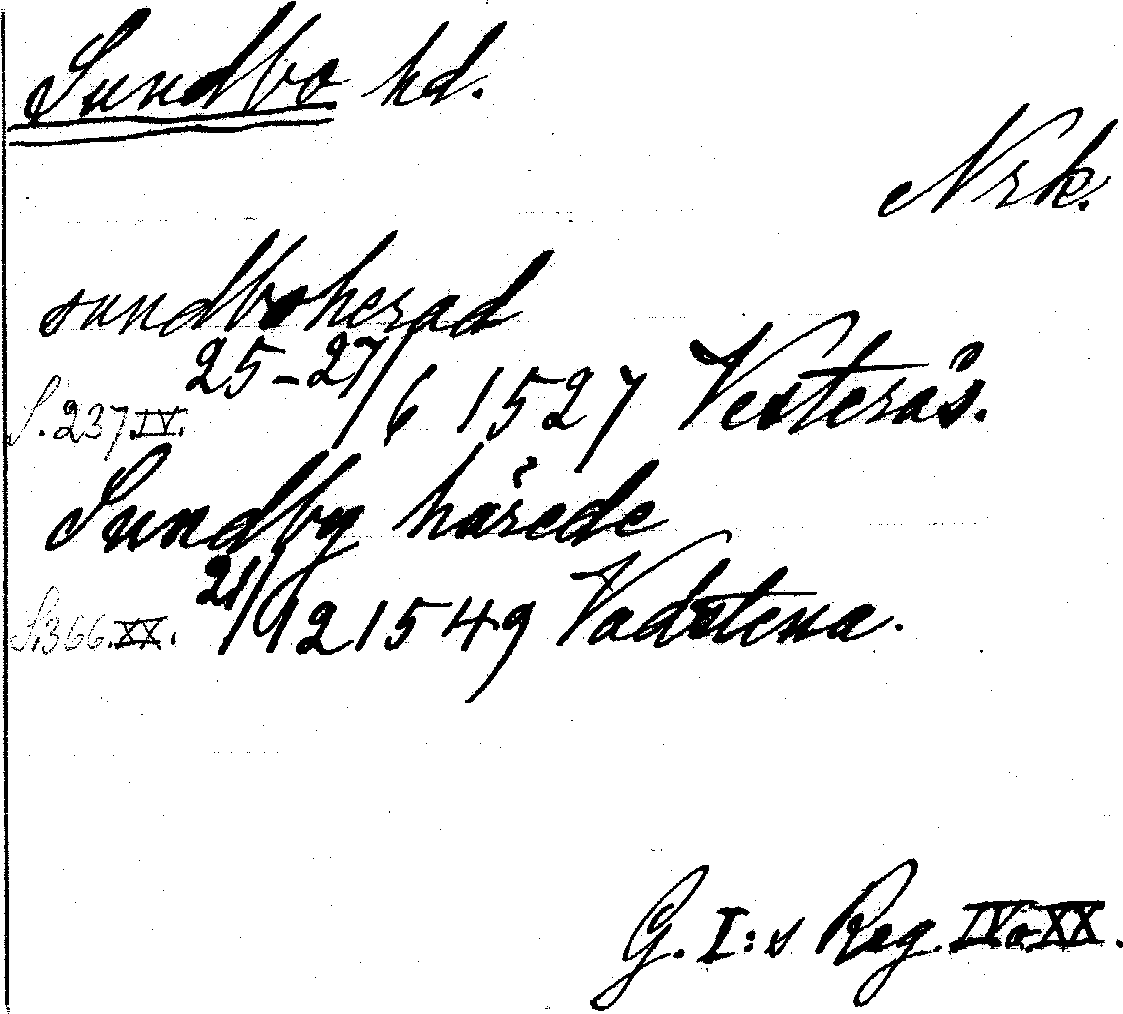 Sundbo hd.
Nrk.
sundboherad
25-27/6 1527 Vesterås.
S. 237 IV.
Sundby härede
21/12 1549 Vadstena.
S. 366. XX.
G. I:s Reg. IV o XX.